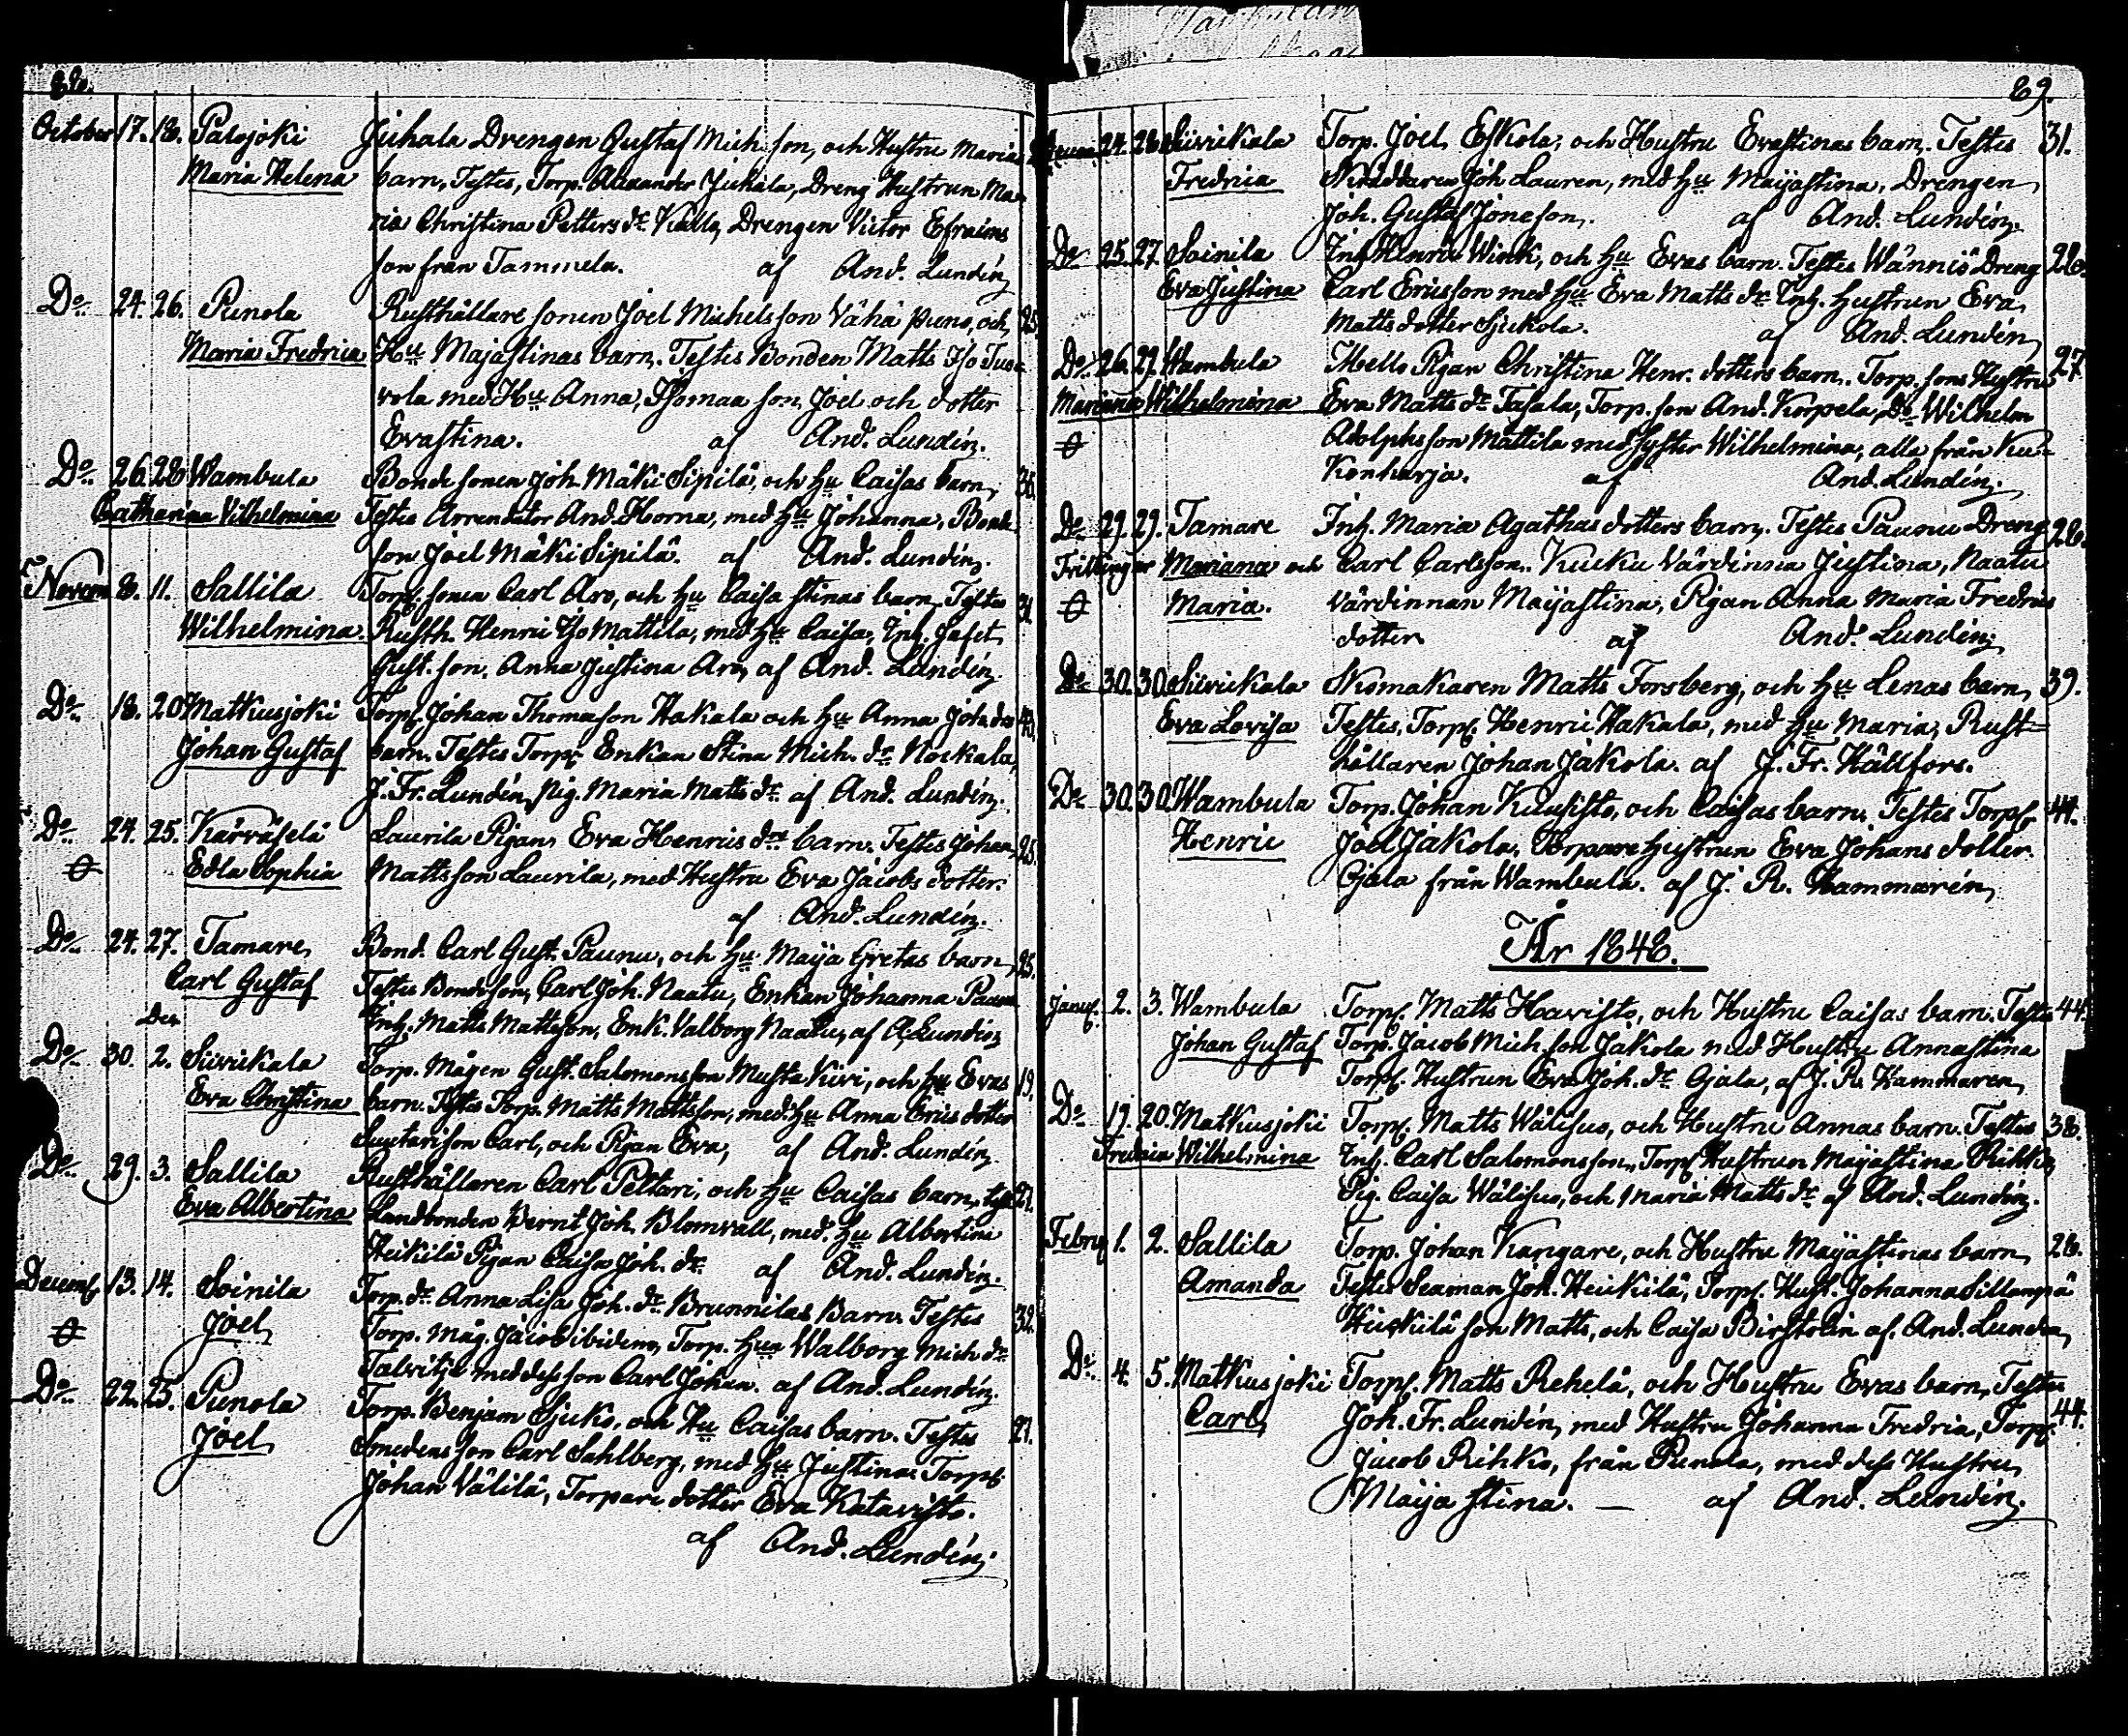 88.
October 17. 18. Palojoki Juhala Drengen Gustaf Mich. son, och Hustru Marias
Maria Helena barn, Testes, Torp. Alexander Juhala, Dreng Hustrun Ma-
ria Christina Petters dr Kallo, Drengen Victor Efraims
son från Tammela. af And. Lundén
Do 24. 26. Punola Rusthållare sonen Joel Michelsson Vähä Puno, och 25.
Maria Fredrica Hu Majastinas barn. Testes Bonden Matts Iso Tuo-
rola med Hu Anna, Isomaa son, Joel och dotter
Evastina. af And. Lundén.
Do 26. 28. Wambula Bonde sonen Joh. Mäki Sipilä, och Hu Caisas barn, 36.
Catharina Vilhelmina Testes Arrendator And. Horna, med Hu Johanna, Bonde
son Joel Mäki Sipilä. af And. Lundén.
Novem 8. 11. Sallila Torp. sonen Carl Aro, och Hu Caisa Stinas barn, Testes 31
Wilhelmina. Rusth. Henric Iso Mattila, med Hu Caisa, Inh. Jafet
Gust. son, Anna Justina Aro, af And. Lundén.
Do 18. 20. Matkusjoki Torp. Johan Thomasson Hakala och Hu Anna Johs drs 43.
Johan Gustaf barn. Testes Torp. Enkan Stina Mich. dr Nockala,
J. Fr. Lundén, pig. Maria Matts dr af And. Lundén.
Do 24. 25. Kärväselä Laurila Pigan Eva Henrics drs barn. Testes Johan 25.
Edla Sophia Mattsson Laurila, med Hustru Eva Jacobs dotter.
af And. Lundén.
Do 24. 27. Tamare, Bond. Carl Gust. Paunu, och Hu Maija Gretas barn, 25.
Carl Gustaf Testes Bondeson, Carl Joh. Naatu, Enkan Johanna Paunu
Dec Inh. Matts Mattsson, Enk. Valborg Naatu, af A. Lundén
Do 30. 2. Suvikala Torp. Mågen Gust. Salomonsson Musta Kivi, och Hu Evas 19.
Eva Christina barn. Testes Torp. Matts Mattsson, med Hu Anna Erics dotter
son Carl, och Pigan Eva, af And. Lundén
Do 29. 3. Sallila Rusthållaren Carl Peltari, och Hu Caisas barn, test 27.
Eva Albertina Landbonden Bernt Joh. Blomvall, med Hu Albertina
Heikilä Pigan Caisa Joh. dr af And. Lundén.
Decemb 13. 14. Soinila Torp. dr Anna Lisa Joh. dr Brunnilas Barn. Testes 32.
Joel Torp. Måg. Jacob ibidem, Torp. Hun Walborg Mich dr
Talvitje med dess son Carl Johan. af And. Lundén.
Do 22. 25. Punola Torp. Benjam Sjuko, och Hu Caisas barn. Testes 27.
Joel Smedens son Carl Sahlberg, med Hu Justina Torp.
Johan Välilä, Torpare dotter Eva Katavisto.
af And. Lundén.
89.
24. 26. Suvikala Torp. Joel Eskola, och Hustru Evastinas barn. Testes 31.
Fredrica Skräddaren Joh Lauren, med Hu Maijastina, Drengen
Joh. Gustaf Joneson. af And. Lundén.
Do 25. 27. Soinila Inh Henric Wink, och Hu Evas barn. Testes Wänniö Dreng 28.
Eva Justina Carl Ericsson med Hu Eva Matts dr Inh. Hustrun Eva
Matts dotter Sjukola. af And. Lundén
Do 26. 29. Wambula Mello Pigan Christina Henr. dotters barn. Torp. sons Hustru 27
Mariana Wilhelmina Eva Matts dr Tasala, Torp. son And. Korpela, Do Wilhelm
Adolphsson Mattila med syster Wilhelmina, alla från Ku-
konharja. af And. Lundén.
Do 29. 29. Tamare Inh. Maria Agathas dotters barn. Testes Paunu Dreng 28.
Trillingar Mariana och Carl Carlsson. Kuku Värdinna Justina, Naatu
Maria. värdinnan Maijastina, Pigan Anna Maria Fredrics
dotter af And. Lundén
Do 30. 30. Suvikala Skomakaren Matts Forsberg, och Hu Lenas barn, 39.
Eva Lovisa Testes, Torp. Henric Hakala, med Hu Maria, Rust-
hållaren Johan Jakola. af J. Fr. Hällfors.
Do 30. 30. Wambula Torp. Johan Kuusisto, och Caisas barn. Testes Torp. 44.
Henric Joel Jakola, Torpare hustrun Eva Johans dotter
Ojala från Wambula. af J. R. Hammarén,
År 1848.
Janu. 2. 3. Wambula Torp. Matts Haavisto, och Hustru Caisas barn. Testes 44.
Johan Gustaf Torp. Jacob Mich. son Jakola med Hustru Annastina
Torp. Hustrun Eva Joh. dr Ojala, af J. R. Hammaren,
Do 19. 20. Matkusjoki Torp. Matts Wälisuo, och Hustru Annas barn. Testes 38.
Fredrica Wilhelmina Inh. Carl Salomonsson, Torp Hustrun Maijastina Rihko,
Pig. Caisa Wälisuo, och Maria Matts dr af And. Lundén.
Febru 1. 2. Sallila Torp. Johan Kangare, och Hustru Maijastinas barn, 26.
Amanda Testes Seaman Joh. Heikilä, Torp. Hust. Johanna Sillanpä
Heikilä son Matts, och Caisa Birström af. And. Lundén,
Do 4. 5. Matkusjoki Torp. Matts Rehelä, och Hustru Evas barn, Testes 44.
Carl, Joh. Fr. Lundén, med Hustru Johanna Fredrica, Torp.
Jacob Rihko, från Punola, med dess Hustru
Maija Stina. — af And. Lundén.